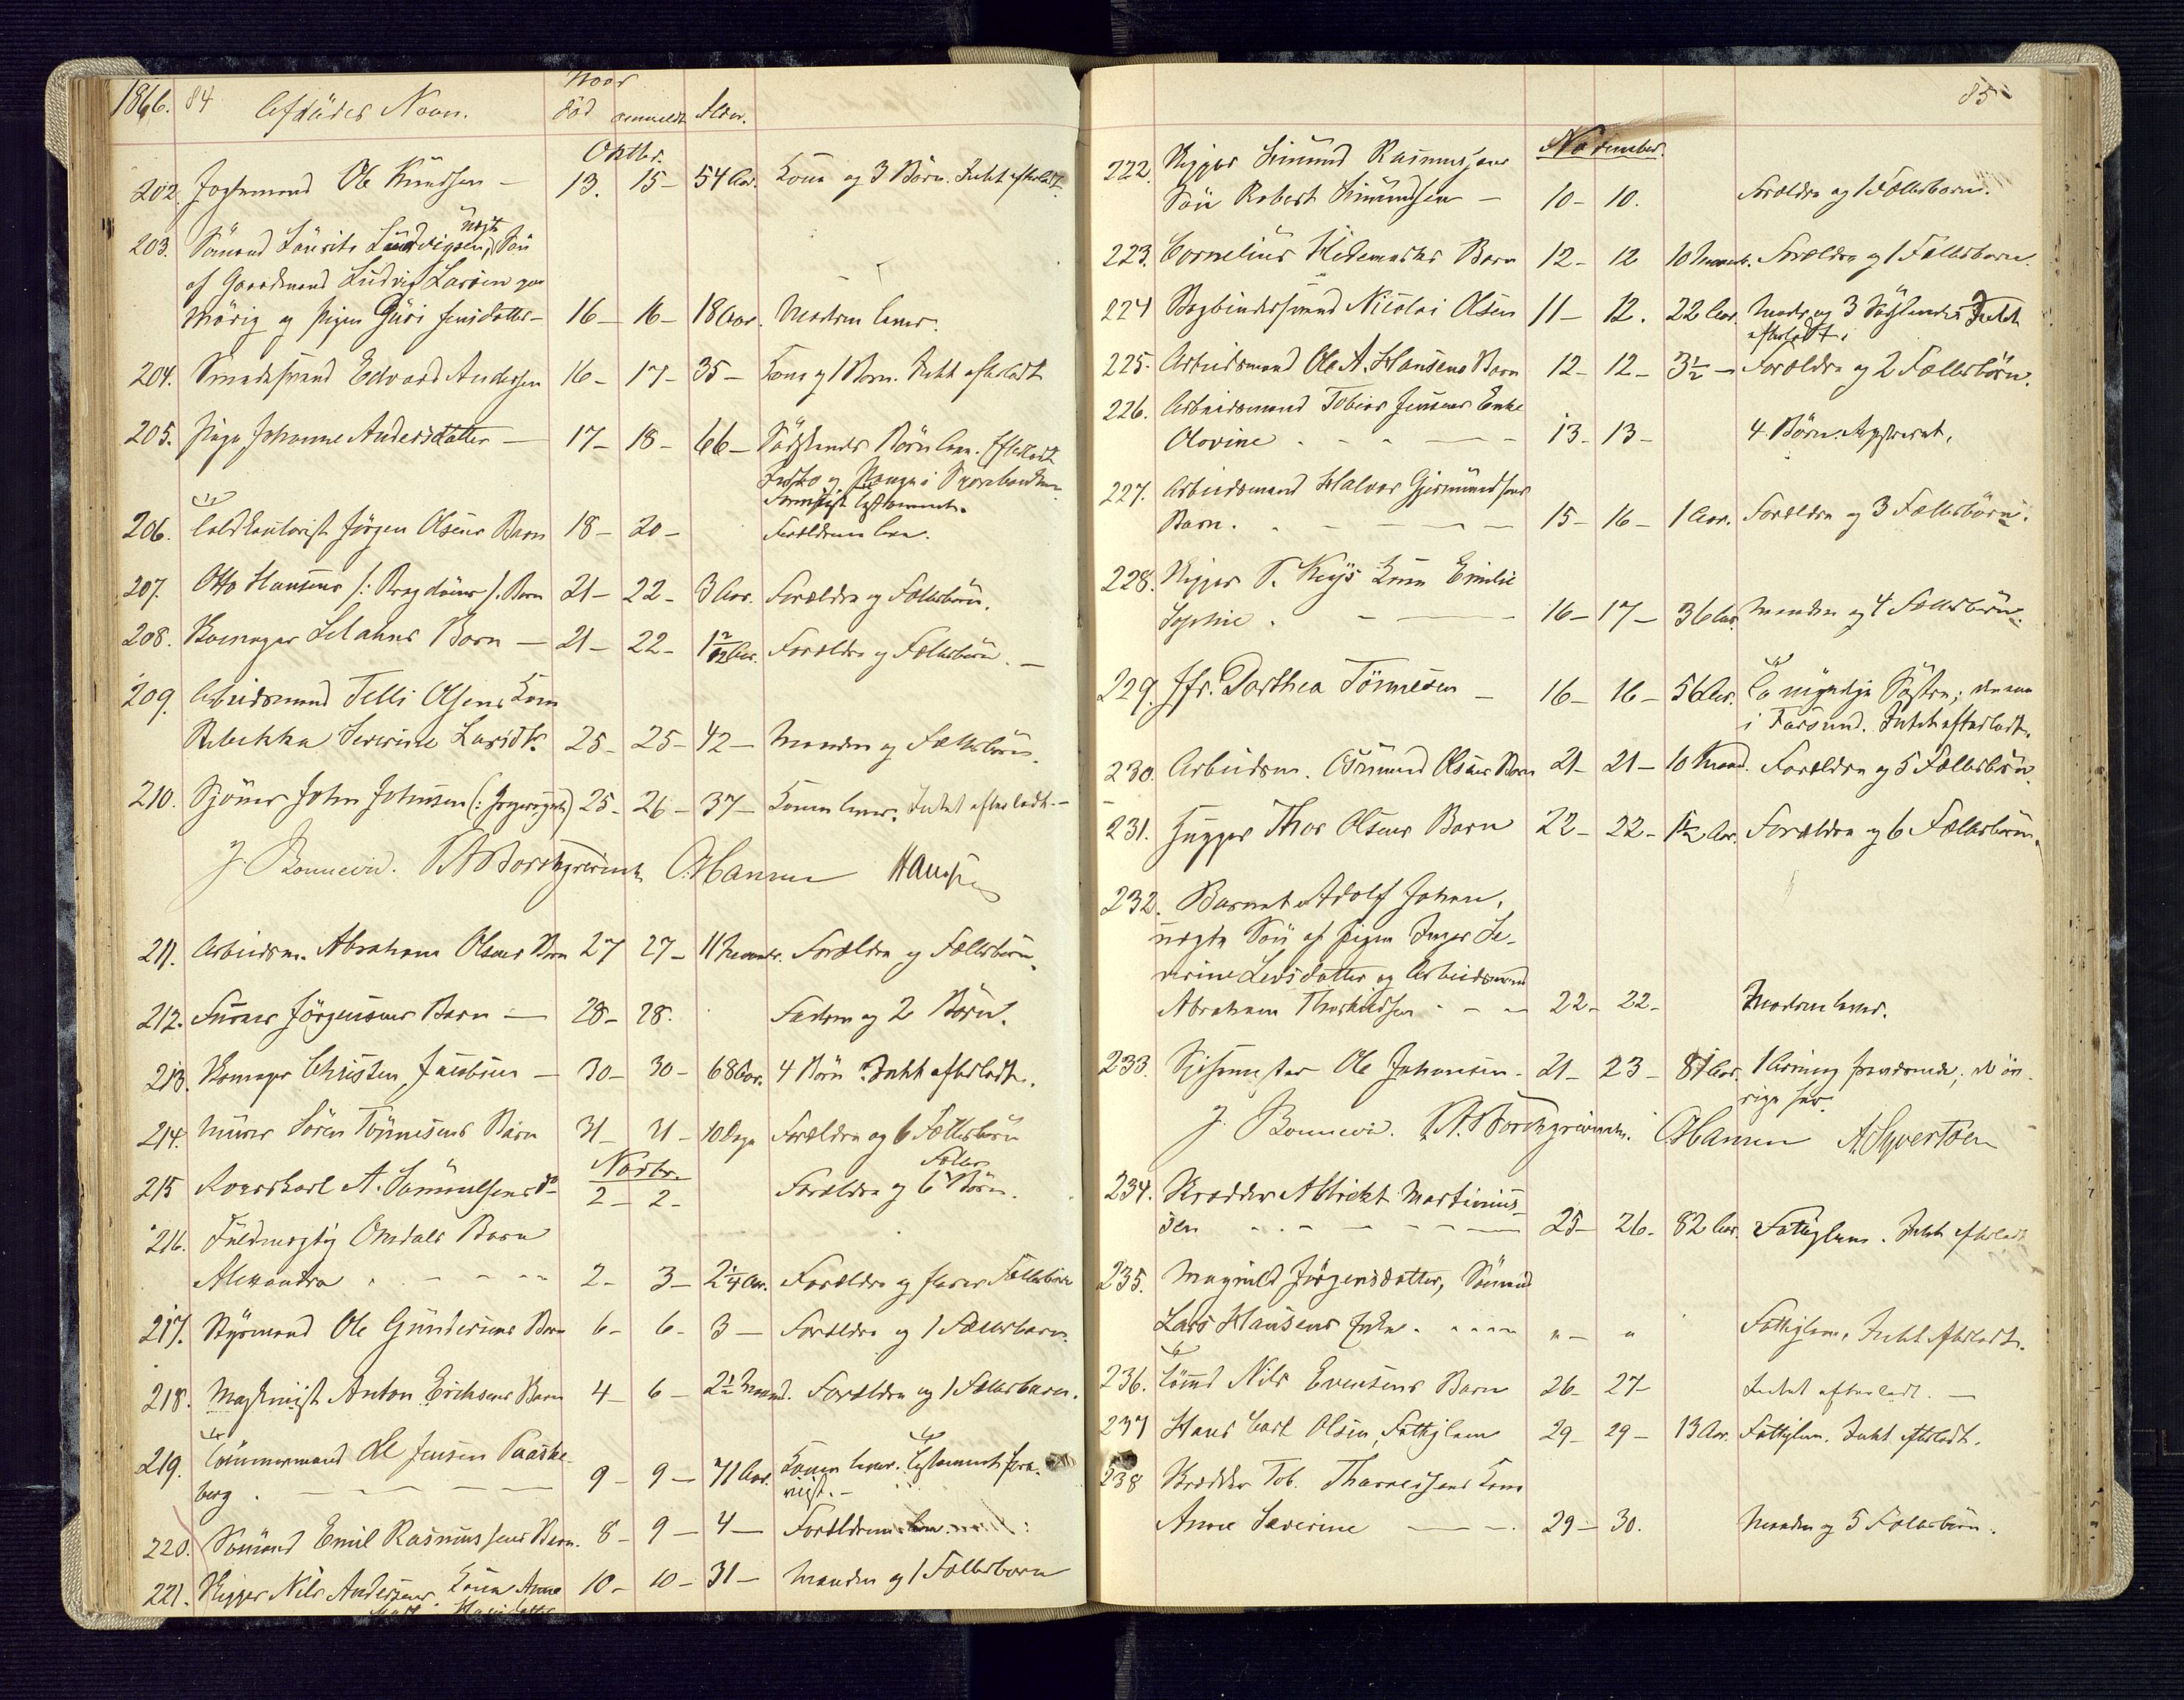 1866. 84 Afdødes Navn. Naar
død anmeldt Alder.
Oktbr.
202. Ole Knudsen — 13. 15- 54 Aar. Kone og 3 Børn. Intet efterladt.
203. Sømand Laurits Ludvigsen, uægte Søn
af Gaardmand Ludvig Larsen paa
Mørig og Pigen Guri Jensdatter- 16- 16- 18 Aar. Moderen lever.
204. Smedesvend Edvard Andersen 16- 17- 35- Kone og 1 Barn. Intet efterladt
205. Pige Johanne Andersdatter — 17- 18- 66- Sødskendes Børn leve. Efterladt
Indbo og Penge i Sparebanken.
206. Jørgen Olsens Barn 18- 20- Forældrene leve.
207. Otto Hansens /: :/ Barn 21- 22- 3 Aar. Forældre og Fællesbørn.
208. Skomager Barn — 21- 22- 1 2/12 Aar. Forældre og Fællesbørn. —
209. Arbeidsmand Telli Olsens Kone
Rebekka Severine Larsdtr. 25- 25- 42- Manden og Fællesbørn.
210. John Johnsen 25- 26- 37- Konen lever. Intet efterladt.-
J. Bonnevie. Borchgrevink O. Hansen
211. Arbeidsm. Abraham Olsens Barn 27 27- 11 Maaneder. Forældre og Fællesbørn.
212. Jørgensens Barn — 28- 28. Faderen og 2 Børn.
213. Skomager Christen Jacobsen — 30- 30- 68 Aar. 4 Børn. Intet efterladt.
214. Murer Søren Tønnesens Barn 31- 31- 10 Dage Forældre og 6 Fællesbørn
Novbr.
215 A. Samuelsens do 2- 2- Forældre og 6 Fælles Børn.
216. Fuldmægtig Omdals Barn
Alexandra . - - - - 2- 3- 2 1/4 Aar. Forældre og Fællesbørn
217. Styrmand Ole Gundersens Barn 6- 6- 3- Forældre og 1 Fællesbarn.
218. Maskinist Anton Erichsens Barn 4- 6- 2 1/2 Maaned. Forældre og 1 Fællesbarn.
219. Tømmermand Ole Jensen Paaske-
berg . - - - - 9- 9- 71 Aar. Konen lever. Testament
220. Sømand Emil Rasmussens Barn. 8- 9- 4- Forældrene leve.
221. Skipper Nils Andersens Kone Anne 10- 10- 31- Manden og 1 Fællesbarn
85
November.
222. Skipper Simund Rasmussens
Søn Robert Simundsen — 10- 10. Forældre og 1 Fællesbarn.
223. Cornelius Hedemarks Barn 12- 12 10 Maaneder. Forældre og 1 Fællesbarn.
224 Bogbindersvend Nicolai Olsen 11- 12. 22 Aar. Moder og 3 Sødskende. Intet
efterladt.
225. Arbeidsmand Ole A. Hansens Barn 12- 12- 3 1/2- Forældre og 2 Fællesbørn.
226. Arbeidsmand Tobias Jensens Enke
Olovine . - - - - 13- 13- 4 Børn. Registreret.
227. Arbeidsmand Halvor Gjermundsens
Barn. . - - - - 15- 16- 1 Aar. Forældre og 3 Fællesbørn.
228. Skipper Kone Emilie
Sophie . - - 16- 17- 36 Aar. Manden og 4 Fællesbørn.
229. Jfr. Dorthea Tønnesen — 16- 16- 56 Aar. En myndig Søster, denne
i Farsund. Intet efterladt.
230. Arbeidsm. Osmund Olsens Barn 21- 21- 10 Maaned. Forældre og 5 Fællesbørn.
231. Thor Olsens Barn 22- 22- 1 1/2 Aar. Forældre og 6 Fællesbørn.
232. Barnet Adolf Johan,
uægte Søn af Pigen Inger Se-
verine Levsdatter og Arbeidsmand
Abraham Thorkildsen - - - 22- 22- Moderen lever.
233. Ole Johansen. 21- 23- 81 Aar. 1 Arving fraværende, de øv-
rige her.
J. Bonnevie. Borchgrevink. O. Hansen A. Syvertsen
234. Skrædder Albrekt Martinius-
sen . . . - - - 25- 26- 82 Aar. Fattiglem. Intet efterladt
235. Magnild Jørgensdatter, Sømand
Lars Hansens Enke . . . . . "- " Fattiglem. Intet efterladt.
236. Tømmd Nils Evensens Barn 26- 27- Intet efterladt. —
237 Hans Carl Olsen, Fattiglem 29- 29- 13 Aar. Fattiglem. Intet efterladt.
238 Skrædder Tob. Tharaldsens Kone
Anne Severine - - -. 29- 30. Manden og 5 Fællesbørn.